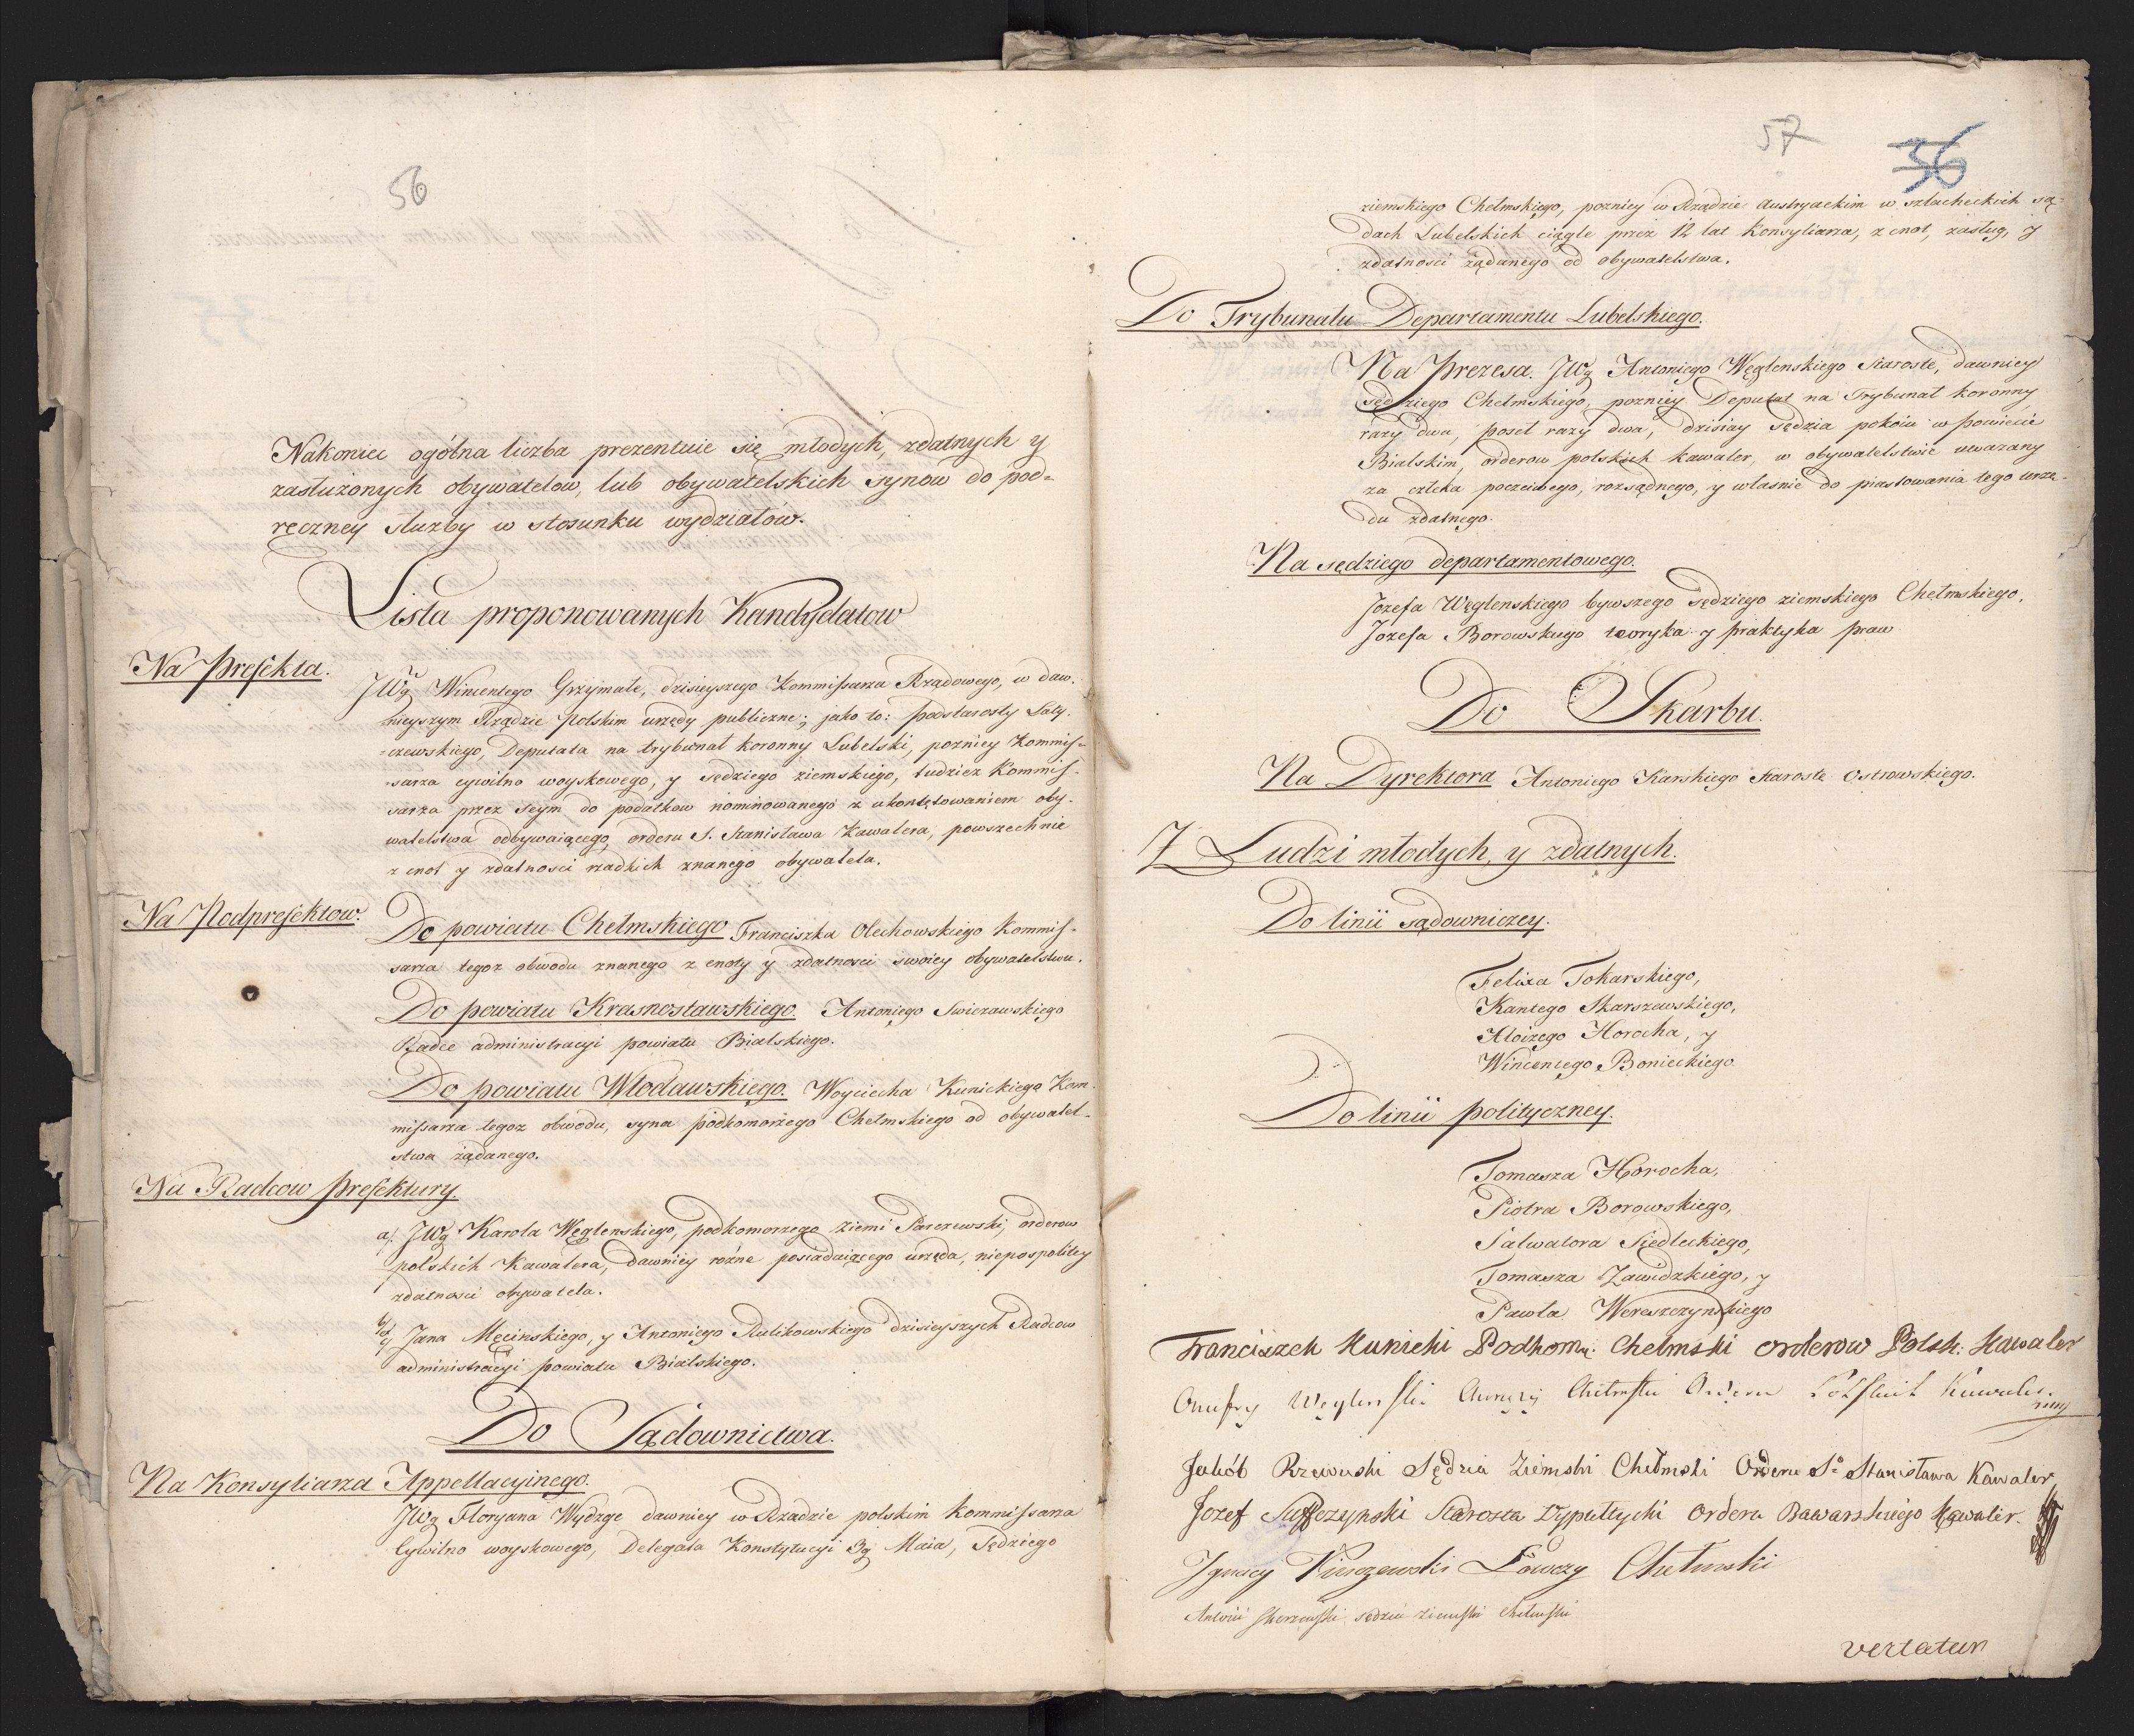 56
Nakoniec ogólna liczba prezentuie się młodych, zdatnych y
zasłużonych obywatelow, lub obywatelskich synow do pod=
ręczney służby w stosunku wydziałow.
Lista proponowanych Kandydatow
Na Prefekta.
JWg Wincentego Grzymałe, dzisieyszego Kommissarza Rządowego, w daw.
nieyszym Rządzie Polskim urzędy publiczne; jako to: Podstarosty Laty.
=czewskiego, Deputata na trybunał koronny Lubelski, pozniey Kommis=
sarza cywilno woyskowego, y sędziego ziemskiego, tudziez Kommis-
sarza przez Seym do podatkow nominowanego z ukontętowaniem oby-
watelstwa odbywaiącego, orderu S. Stanisława Kawalera, powszechnie
z cnot y zdatnosci rzadkich znanego obywatela.
Na Podprefektow.
Do powiatu Chełmskiego Franciszka Olechowskiego Kommis-
sarza tegoz obwodu znanego z cnoty y zdatnosci swoiey obywatelstwu.
Do powiatu Krasnostawskiego. Antoniego Swiezawskiego
Radce administracyi powiatu Bialskiego.
Do powiatu Włodawskiego. Woyciecha Kunickiego Kom-
missarza tegoz obwodu, syna podkomorzego Chełmskiego od obywatel-
stwa żądanego.
Na Radcow Prefektury.
a/. JWg Karola Węglenskiego, podkomorzego ziemi Parczewski, orderow
polskich Kawalera, dawniey rożne posiadaiącego urzęda, niepospolitey
zdatnosci obywatela.
b/ et c/ Jana Męcinskiego, y Antoniego Rulikowskiego dzisieyszych Radcow
administracyi powiatu Bialskiego.
Do Sądownictwa.
Na Konsyliarza Appellacyinego.
JWg Floryana Wydzge dawniey w Rządzie polskim kommissarza
Cywilno woyskowego, Delegata Konstytucyi 3g Maia, Sędziego
57 36
ziemskiego Chełmskiego, pozniey w Rządzie Austryackim w szlacheckich są=
dach Lubelskich ciągle przez 12 lat Konsyliarza, z cnot, zasług, y
zdatnosci żądanego od obywatelstwa.
Do Trybunału Departamentu Lubelskiego.
Na Prezesa. JWg Antoniego Węglenskiego Staroste, dawniey
Sędziego Chełmskiego, pozniey Deputat na Trybunał koronny
razy dwa, poseł razy dwa, dzisiay Sędzia pokoiu w powiecie
Bialskim, orderow polskich kawaler, w obywatelstwie uwazany
za człeka poczciwego, rozsądnego, y własnie do piastowania tego urzę-
du zdatnego.
Na sędziego departamentowego.
Jozefa Węglenskiego bywszego sędziego ziemskiego Chełmskiego,
Jozefa Borowskiego teoryka y praktyka praw
Do Skarbu.
Na Dyrektora Antoniego Karskiego Staroste Ostrowskiego.
Z Ludzi młodych, y zdatnych.
Do linii sądowniczey.
Felixa Tokarskiego,
Kantego Skarszewskiego,
Aloizego Horocha, y
Wincentego Bonieckiego
Do linii polityczney.
Tomasza Horocha,
Piotra Borowskiego,
Salwatora Siedleckiego,
Tomasza Zawidzkiego, y
Pawła Wereszczynskiego
Franciszek Kunicki Podkom: Chełmski Orderow Polsk: Kawaler
Onufry Węglenski Chorąży Chełmski Orderu Polskich Kawaler
Jakób Rzewuski Sędzia Ziemski Chełmski Orderu So Stanisława Kawaler
Jozef Suffczynski Starosta Dypułtycki Orderu Bawarskiego Kawaler.
Ignacy Łowczy Chełmski
Antoni Skarzewski sędzia ziemski chełmski
vertatur